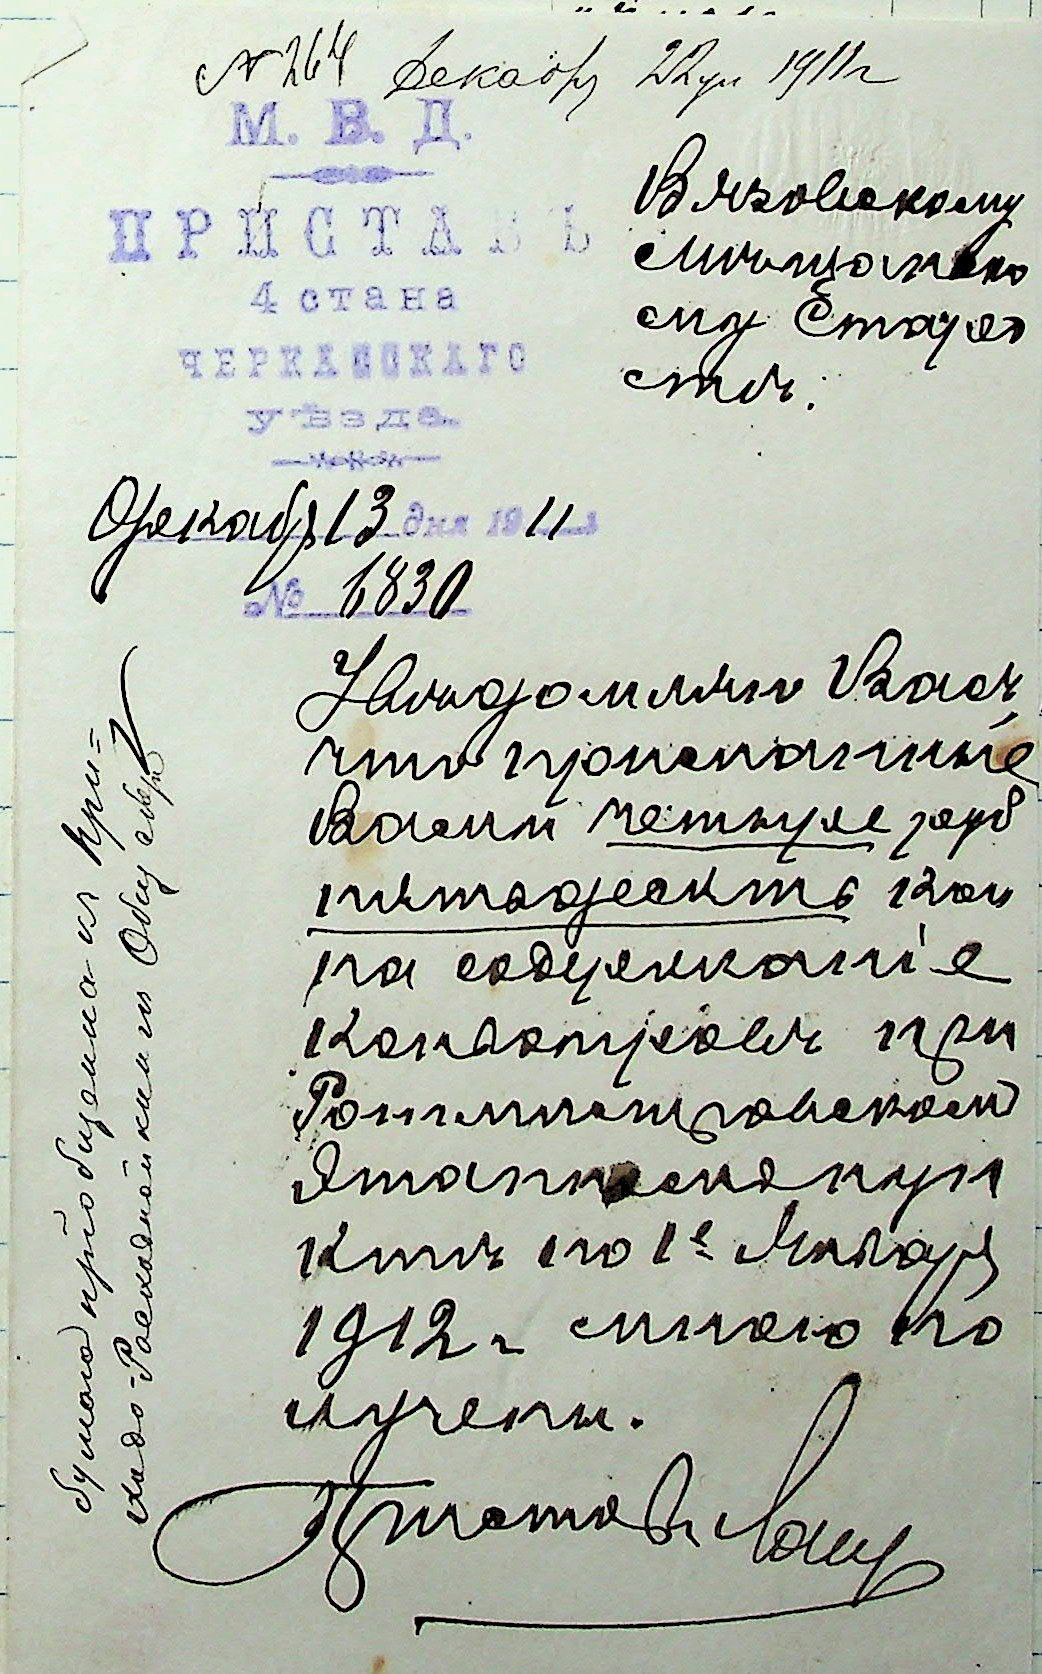 № 264 Декабр 22 дн 1911 г
М. В. Д.
ПРИСТАВЪ
4 стана
ЧЕРКАССКАГО
уѣзда.
Декабр 13 дня 1911 г
№ 6830
Вязовскому
мѣщанско
му Старо
стѣ.
Увѣдомляю Васъ
что присланные
Вами четыре руб
пятьдесятъ коп
на содержаніе
конвоировъ при
Ротмистровском
Этапномъ пун
ктѣ по 1е Января
1912 г мною по
лучены.
Приставъ
бумага пріобщена къ При=
ходо-Расходной книгѣ